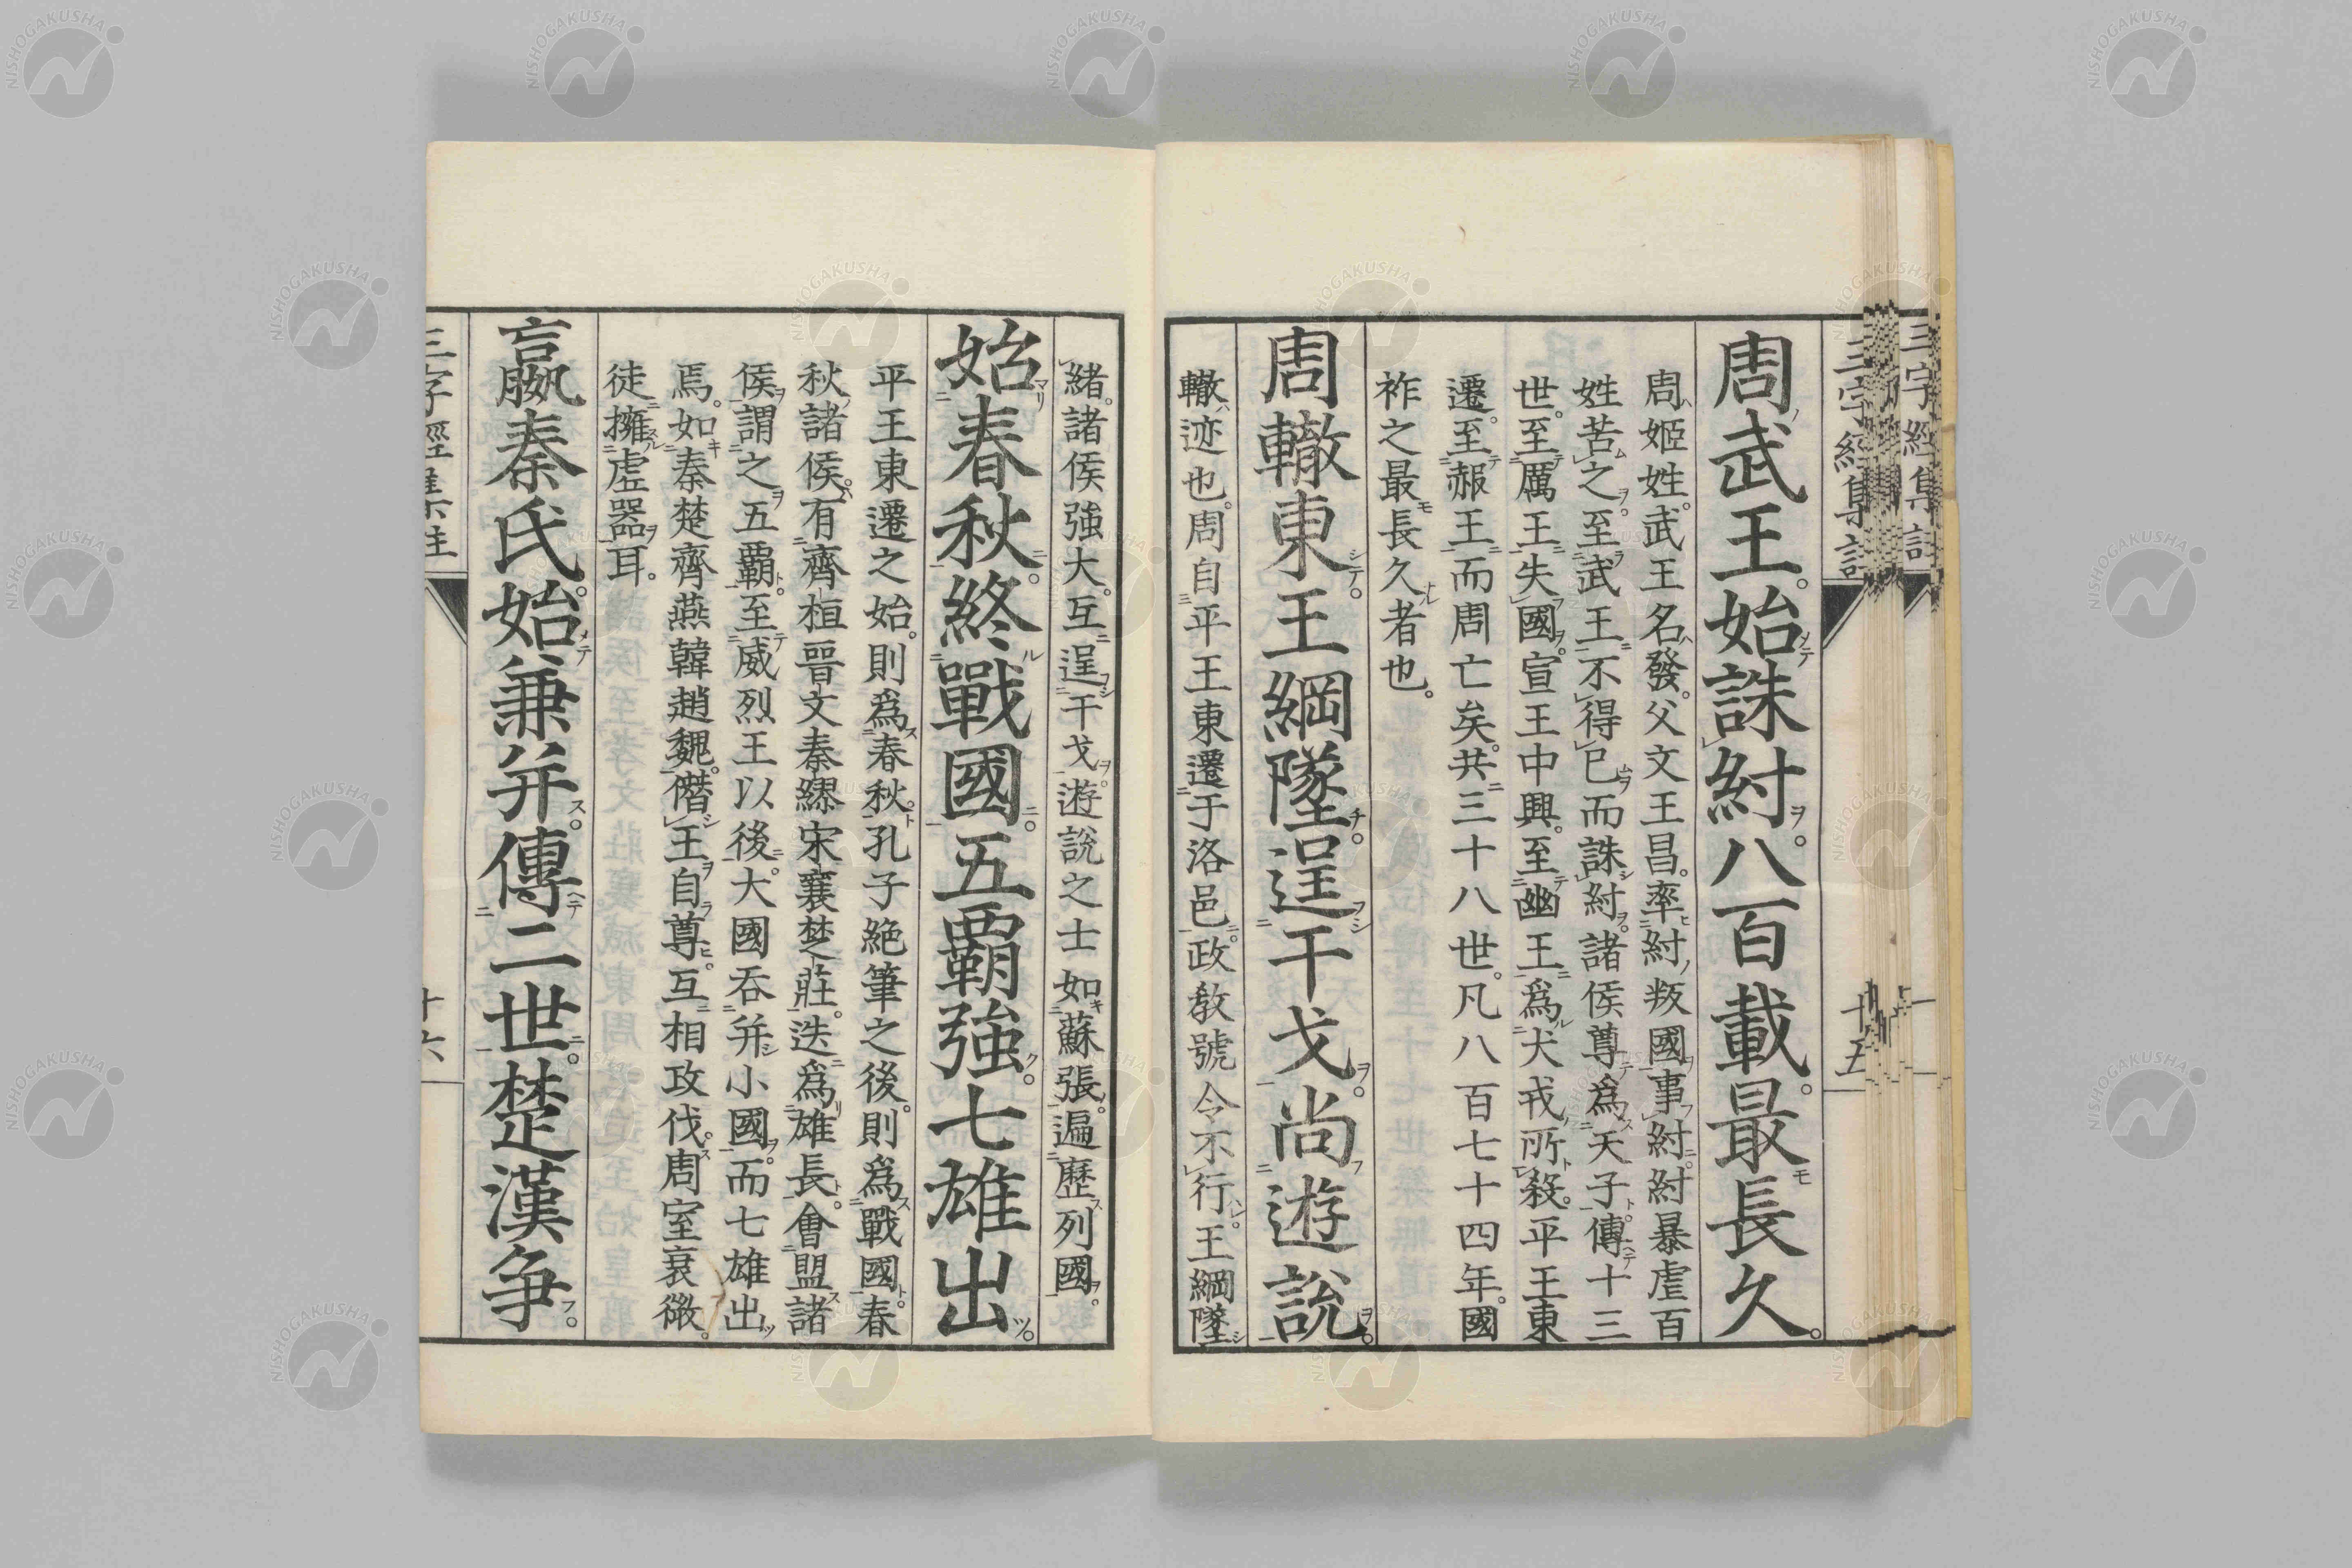 三字經集註
周武王。始誅紂。八百載。最長久。
周姬姓。武王名發。父文王昌。率紂叛國事紂。紂暴虐百
姓苦之。至武王不得已而誅紂。諸侯尊爲天子。傳十三
世。至厲王失國。宣王中興。至幽王爲犬戎所殺。平王東
遷。至赧王而周亡矣。共三十八世。凡八百七十四年。國
祚之最長久者也。
周轍東。王綱墜。逞干戈。尚遊說。
轍迹也。周自平王東遷于洛邑。政教號令不行。王綱墜
十五
緒。諸侯強大。互逞干戈。遊說之士如蘇張。遍歷列國。
始春秋。終戰國。五覇強。七雄出。
平王東遷之始。則爲春秋。孔子絶筆之後。則爲戰國。春
秋諸侯。有齊桓晉文秦繆宋襄楚莊。迭爲雄長。會盟諸
侯。謂之五覇。至威烈王以後。大國吞并小國。而七雄出
焉。如秦楚齊燕韓趙魏。僭王自尊。互相攻伐。周室衰微。
徒擁虛器耳。
嬴秦氏。始兼并。傳二世。楚漢争。
三字經集註
十六
NISHOGAKUSHA